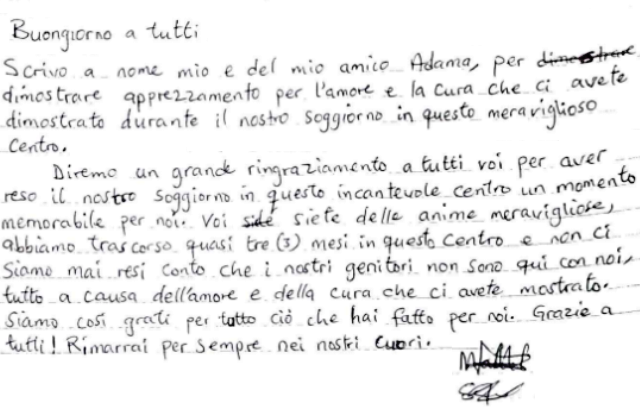 Buongiorno a tutti
Scrivo a nome mio e del mio amico Adama, per dimostrare
dimostrare apprezzamento per l'amore e la cura che ci avete
dimostrato durante il nostro soggiorno in questo meraviglioso
Centro.
Diremo un grande ringraziamento a tutti voi per aver
reso il nostro soggiorno in questo incantevole centro un momento
memorabile per noi. Voi siete delle anime meravigliose,
abbiamo trascorso quasi tre (3) mesi in questo Centro e non ci
Siamo mai resi conto che i nostri genitori non sono qui con noi,
tutto a causa dell'amore e della cura che ci avete mostrato.
Siamo così grati per tutto ciò che hai fatto per noi. Grazie a
tutti! Rimarrai per sempre nei nostri Cuori.